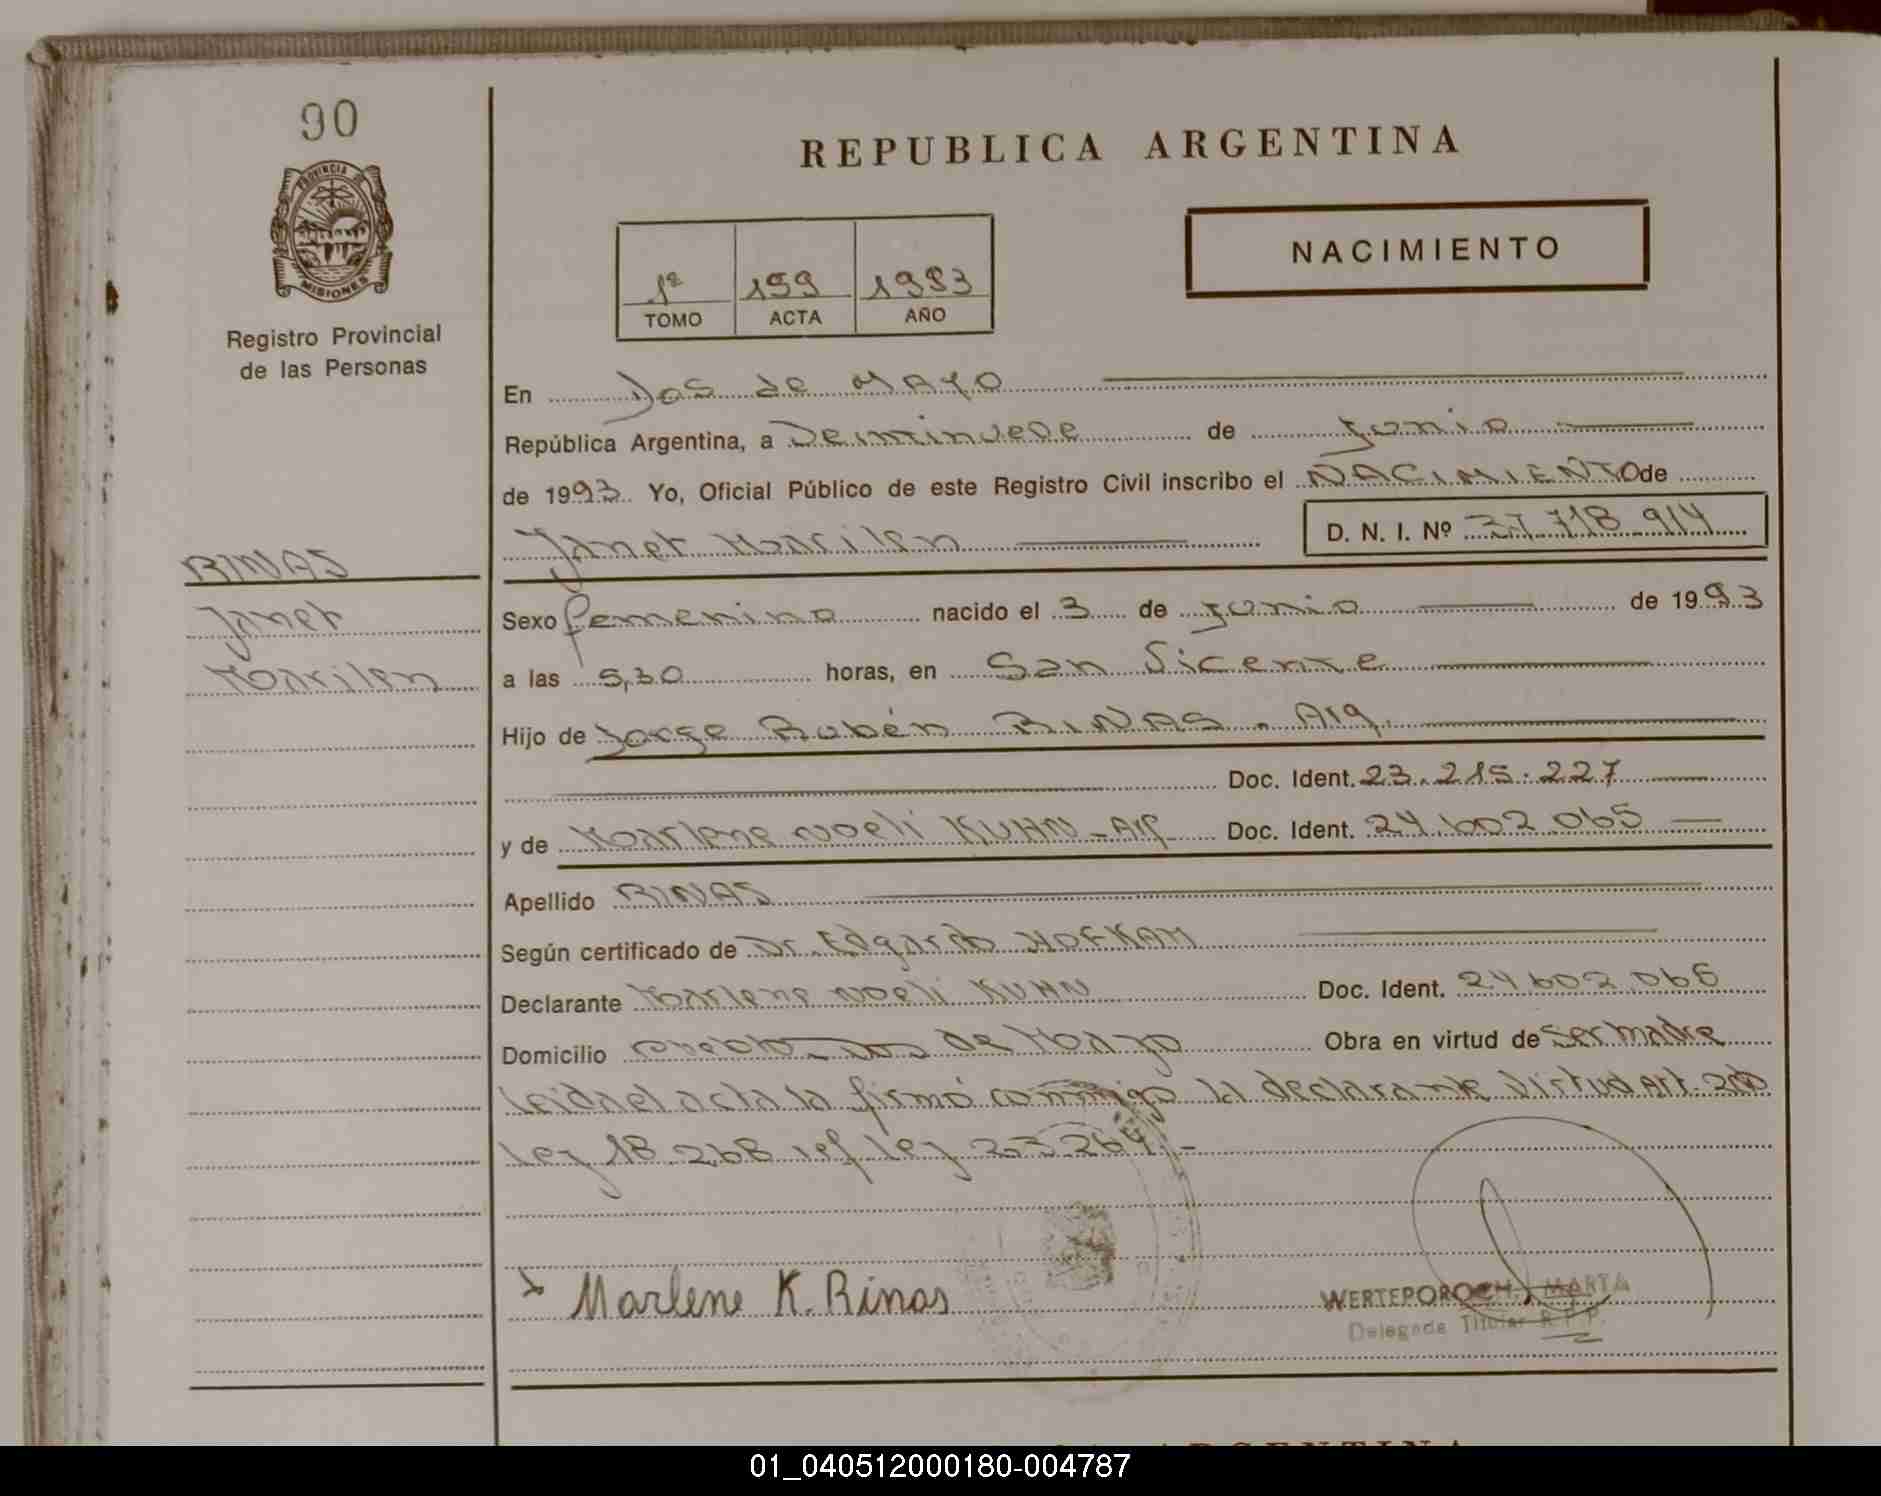 90
PROVINCIA DE
MISIONES
Registro Provincial
de las Personas
REPUBLICA ARGENTINA
NACIMIENTO
1º 199 1993
TOMO ACTA AÑO
En Dos de MAYO
República Argentina, a Deintinueve de junio
de 1993. Yo, Oficial Público de este Registro Civil inscribo el NACIMIENTO de
Janet Marilen D. N. I. Nº 37.718.914
RINAS
Janet
Marilen
Sexo femenino nacido el 3 de junio de 1993
a las 5,30 horas, en San Vicente
Hijo de Jorge Rubén RINAS - Arg.
Doc. Ident. 23.215.227
y de Marlene Noeli KUHN - Arg Doc. Ident. 24.602.065
Apellido RINAS
Según certificado de Dr. Edgardo HOFKAM
Declarante Marlene Noeli KUHN Doc. Ident. 24.602.065
Domicilio Dos de Mayo Obra en virtud de ser madre
Leida el acta la firmó conmigo la declarante Virtud Art.
Ley 18.268 ref ley 23.264.-
Marlene K. Rinas
WERTEPOROCH, MARTA
Delegada Titular R.P.P.
ARGENTINA
01_040512000180-004787